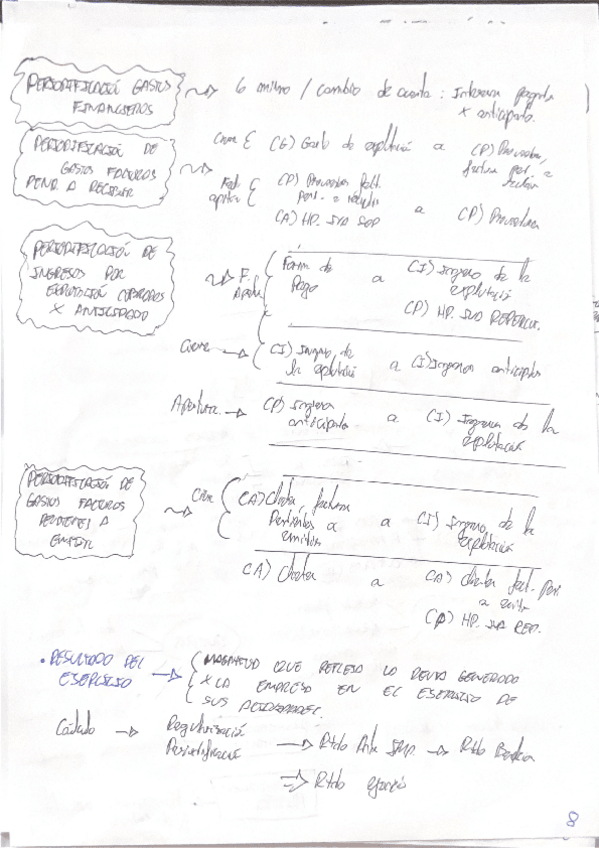 PERIODIFICACIÓ GASTOS
FINANCIEROS
6 mismo / cambio de cuenta: Intereses pagados
x anticipado.
PERIODIFICACIÓN DE
GASTOS FACTUROS
PEND. A RECIBIR
Cierre { (G) Gasto de explotació a (P) Proveedores,
factura per. a
recibir
apertura { (P) Proveedores fact.
pent. a recibir
(A) HP. IVA SOP a (P) Proveedores
PERIODIFICACIÓN DE
INGRESOS POR
EXPLOTACIÓN COBRADOS
X ANTICIPADO
F.
Forma de
Pago a (I) Ingreso de la
explotació
(P) HP. IVA REPERCU.
Cierre { (I) Ingreso de
la explotació a (I) Ingresos anticipados
Apertura. (P) Ingresos
anticipado a (I) Ingresos de la
explotación
PERIODIFICACIÓ DE
GASTOS FACTUROS
PENDIENTES A
EMITIR
Cierre { (A) Clientes, facturas
Pendientes a
emitir a (I) Ingreso de la
explotació
(A) Clientes a (A) clientes fact. pen.
a emitir
(P) HP. IVA REP.
• RESULTADO DEL
EJERCICIO
{ MAGNITUD QUE REFLEJA LA RENTA GENERADA
X LA EMPRESA EN EL EJERCICIO DE
SUS ACTIVIDADES.
Cálculo Regularización
Periodificació Rtdo Ante IMP. Rtdo
Rtdo ejercicio
8